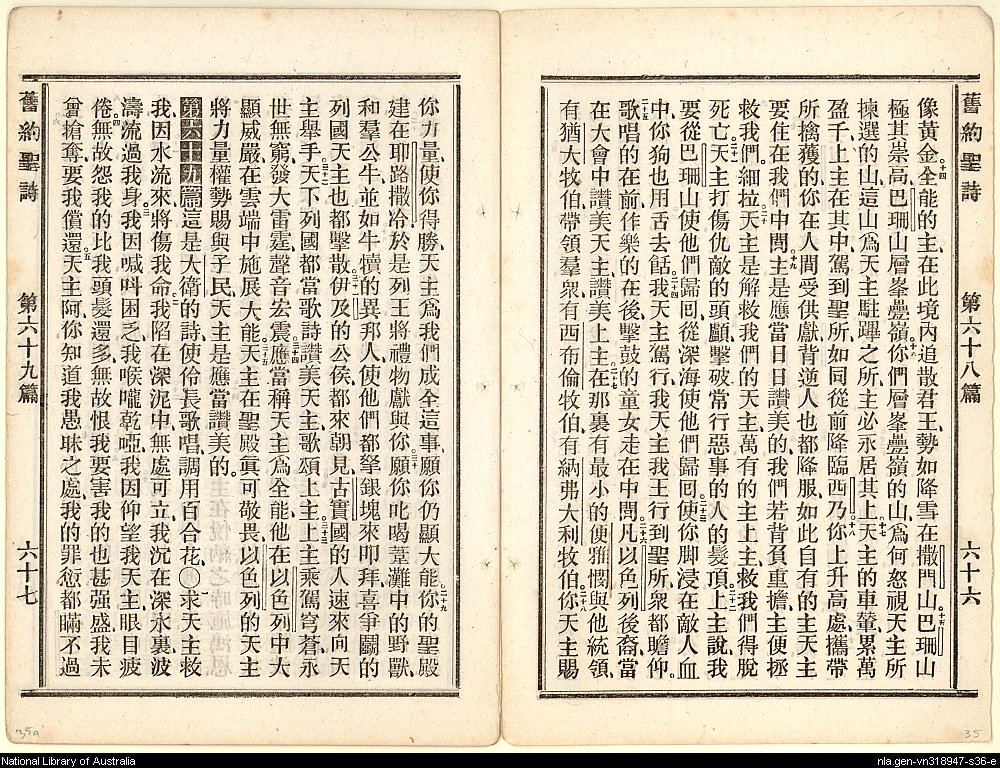 舊約聖詩 第六十八篇 六十六
像黃金十四全能的主在此境內追散君王勢如降雪在撒門山十五巴珊山
極其崇高巴珊山層峯疊嶺十六你們層峯疊嶺的山爲何怒視天主所
揀選的山這山爲天主駐蹕之所主必永居其上十七天主的車輦累萬
盈千上主在其中駕到聖所如同從前降臨西乃十八你上升高處攜帶
所擒獲的你在人間受供獻背逆人也都降服如此自有的主天主
要住在我們中間十九主是應當日日讚美的我們若背負重擔主便拯
救我們細拉二十天主是解救我們的天主萬有的主上主救我們得脫
死亡二十一天主打傷仇敵的頭顱擊破常行惡事的人的髮頂二十二上主說我
要從巴珊山使他們歸回從深海使他們歸回二十三使你脚浸在敵人血
中你狗也用舌去餂二十四我天主駕行我天主我王行到聖所衆都瞻仰
二十五歌唱的在前作樂的在後擊鼓的童女走在中間二十六凡以色列後裔當
在大會中讚美天主讚美上主二十七在那裏有最小的便雅憫與他統領
有猶大牧伯帶領羣衆有西布倫牧伯有納弗大利牧伯二十八你天主賜
你力量使你得勝天主爲我們成全這事願你仍顯大能二十九你的聖殿
建在耶路撒冷於是列王將禮物獻與你三十願你叱喝葦灘中的野獸
和羣公牛並如牛犢的異邦人使他們都拏銀塊來叩拜喜爭鬭的
列國天主也都擊散三十一伊及的公侯都來朝見古實國的人速來向天
主舉手三十二天下列國都當歌詩讚美天主歌頌上主三十三上主乘駕穹蒼永
世無窮發大雷霆聲音宏震三十四應當稱天主爲全能他在以色列中大
顯威嚴在雲端中施展大能三十五天主在聖殿眞可敬畏以色列的天主
將力量權勢賜與子民天主是應當讚美的
第六十九篇這是大衛的詩使伶長歌唱調用百合花〇一求天主救
我因水流來將傷我命二我陷在深泥中無處可立我沉在深水裏波
濤流過我身三我因喊呌困乏我喉嚨乾啞我因仰望我天主眼目疲
倦四無故怨我的比我頭髮還多無故恨我要害我的也甚强盛我未
曾搶奪要我償還五天主阿你知道我愚昧之處我的罪愆都瞞不過
舊約聖詩 第六十九篇 六十七
35a
35
National Library of Australia
nla.gen-vn318947-s36-e